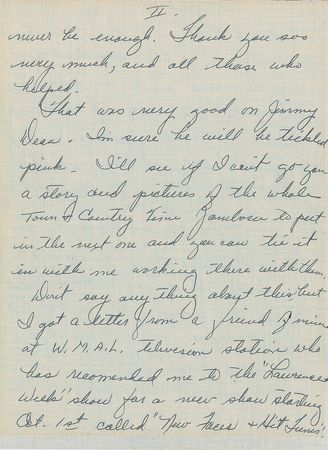 II.
never be enough. Thank you soo
very much, and all those who
helped.
That was very good on Jimmy
Dean. I'm sure he will be tickled
pink. I'll see if I can't go you
a story and pictures of the whole
Town & Country Time Jamboree to put
in the next one and you can tie it
in with me working there with them.
Don't say any thing about this but
I got a letter from a friend of mine
at W.M.A.L. television station who
has recomended me to the "Lawrence
Welk" show for a new show starting
Oct. 1st called "New Faces & Hit Tunes".